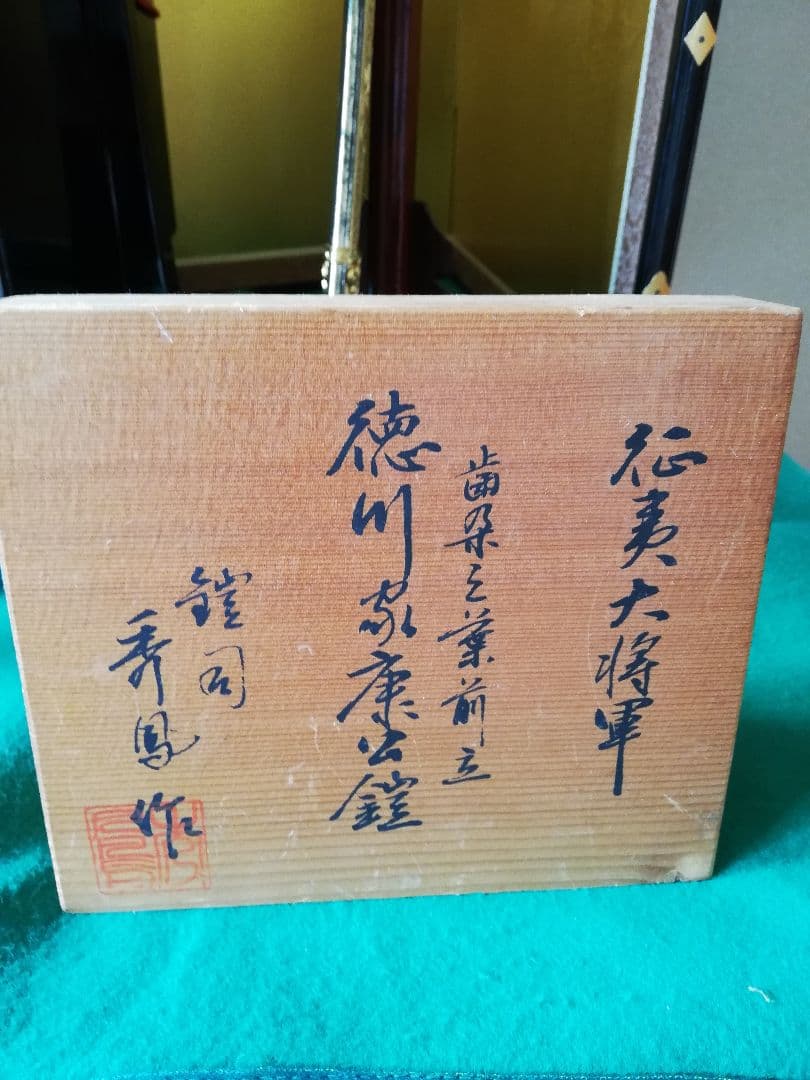 征夷大将軍
歯朶之葉前立
徳川家康公鎧
鎧司
秀鳳作